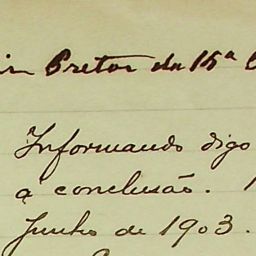 Pretor da 15ª
Informando digo
a conclusão.
Junho de 1903.